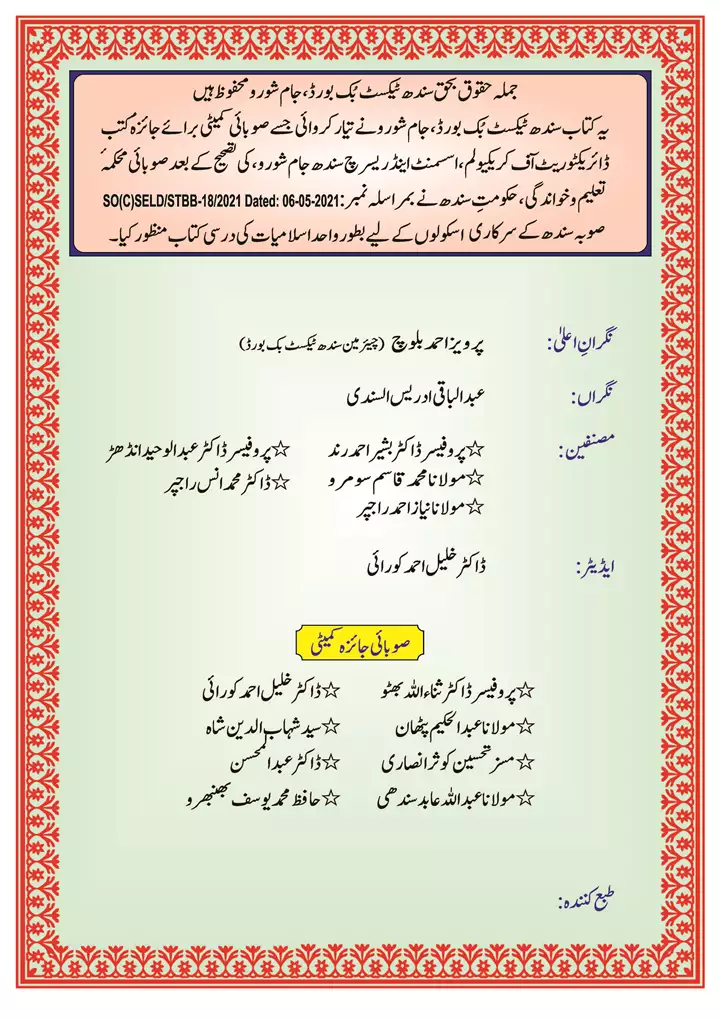 جملہ حقوق بحق سندھ ٹیکسٹ بُک بورڈ، جام شورو محفوظ ہیں
یہ کتاب سندھ ٹیکسٹ بُک بورڈ، جام شورو نے تیار کروائی جسے صوبائی کمیٹی برائے جائزہ کتب
ڈائریکٹوریٹ آف کریکیولم، اسسمنٹ اینڈ ریسرچ سندھ جام شورو، کی تصحیح کے بعد صوبائی محکمۂ
تعلیم و خواندگی، حکومتِ سندھ نے بمراسلہ نمبر: SO(C)SELD/STBB-18/2021 Dated: 06-05-2021
صوبہ سندھ کے سرکاری اسکولوں کے لیے بطور واحد اسلامیات کی درسی کتاب منظور کیا۔
نگرانِ اعلیٰ: پرویز احمد بلوچ (چیئرمین سندھ ٹیکسٹ بک بورڈ)
نگراں: عبدالباقی ادریس السندی
مصنفین: ☆پروفیسر ڈاکٹر بشیر احمد رند ☆پروفیسر ڈاکٹر عبدالوحید انڈھڑ
☆مولانا محمد قاسم سومرو ☆ڈاکٹر محمد انس راجپر
☆مولانا نیاز احمد راجپر
ایڈیٹر: ڈاکٹر خلیل احمد کورائی
صوبائی جائزہ کمیٹی
☆پروفیسر ڈاکٹر ثناءاللہ بھٹو ☆ڈاکٹر خلیل احمد کورائی
☆مولانا عبدالحکیم پٹھان ☆سید شہاب الدین شاہ
☆مسز تحسین کوثر انصاری ☆ڈاکٹر عبدالمحسن
☆مولانا عبداللہ عابد سندھی ☆حافظ محمد یوسف بھنبھرو
طبع کنندہ: